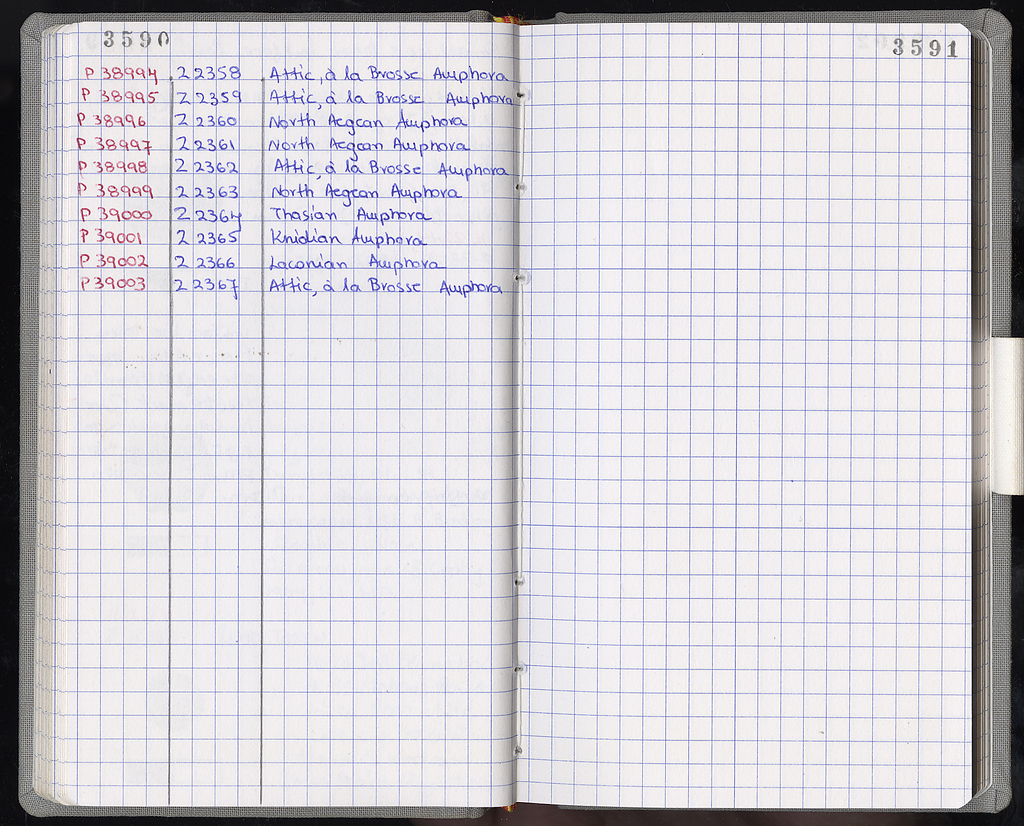 3590
P 38994 Z 2358 Attic, à la Brosse Amphora
P 38995 Z 2359 Attic, à la Brosse Amphora
P 38996 Z 2360 North Aegean Amphora
P 38997 Z 2361 North Aegean Amphora
P 38998 Z 2362 Attic, à la Brosse Amphora
P 38999 Z 2363 North Aegean Amphora
P 39000 Z 2364 Thasian Amphora
P 39001 Z 2365 Knidian Amphora
P 39002 Z 2366 Laconian Amphora
P 39003 Z 2367 Attic, à la Brosse Amphora
3591